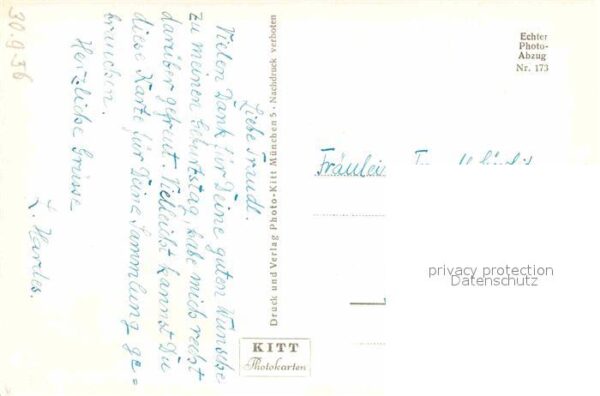 30.9.56
Liebe Traudl.
Vielen Dank für Deine guten Wünsche
zu meinem Geburtstag, habe mich recht
darüber gefreut. Vielleicht kannst Du
diese Karte für Deine Sammlung ge=
brauchen.
Herzliche Grüsse
L. Hardes.
Druck und Verlag Photo-Kitt München 5 · Nachdruck verboten
KITT
Photokarten
Echter
Photo-
Abzug
Nr. 173
Fräulein
privacy protection
Datenschutz